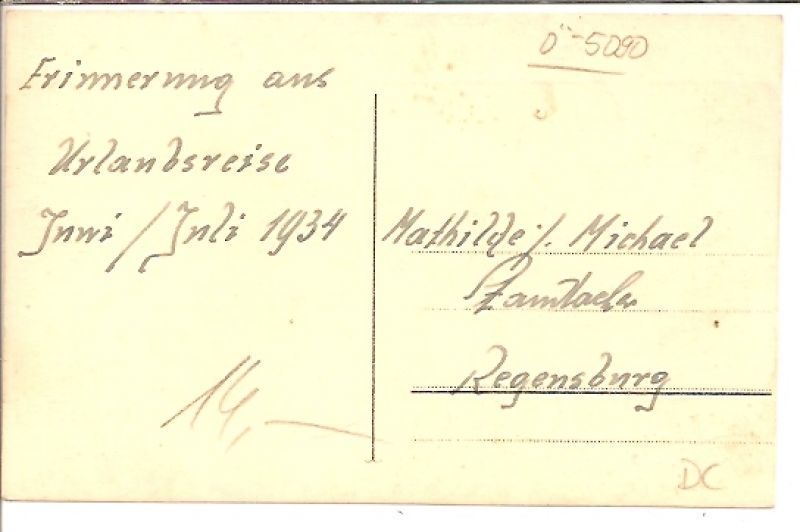 Ö-5090
Erinnerung aus
Urlaubsreise
Juni / Juli 1934
Mathilde /. Michael
Regensburg
14,—
DC